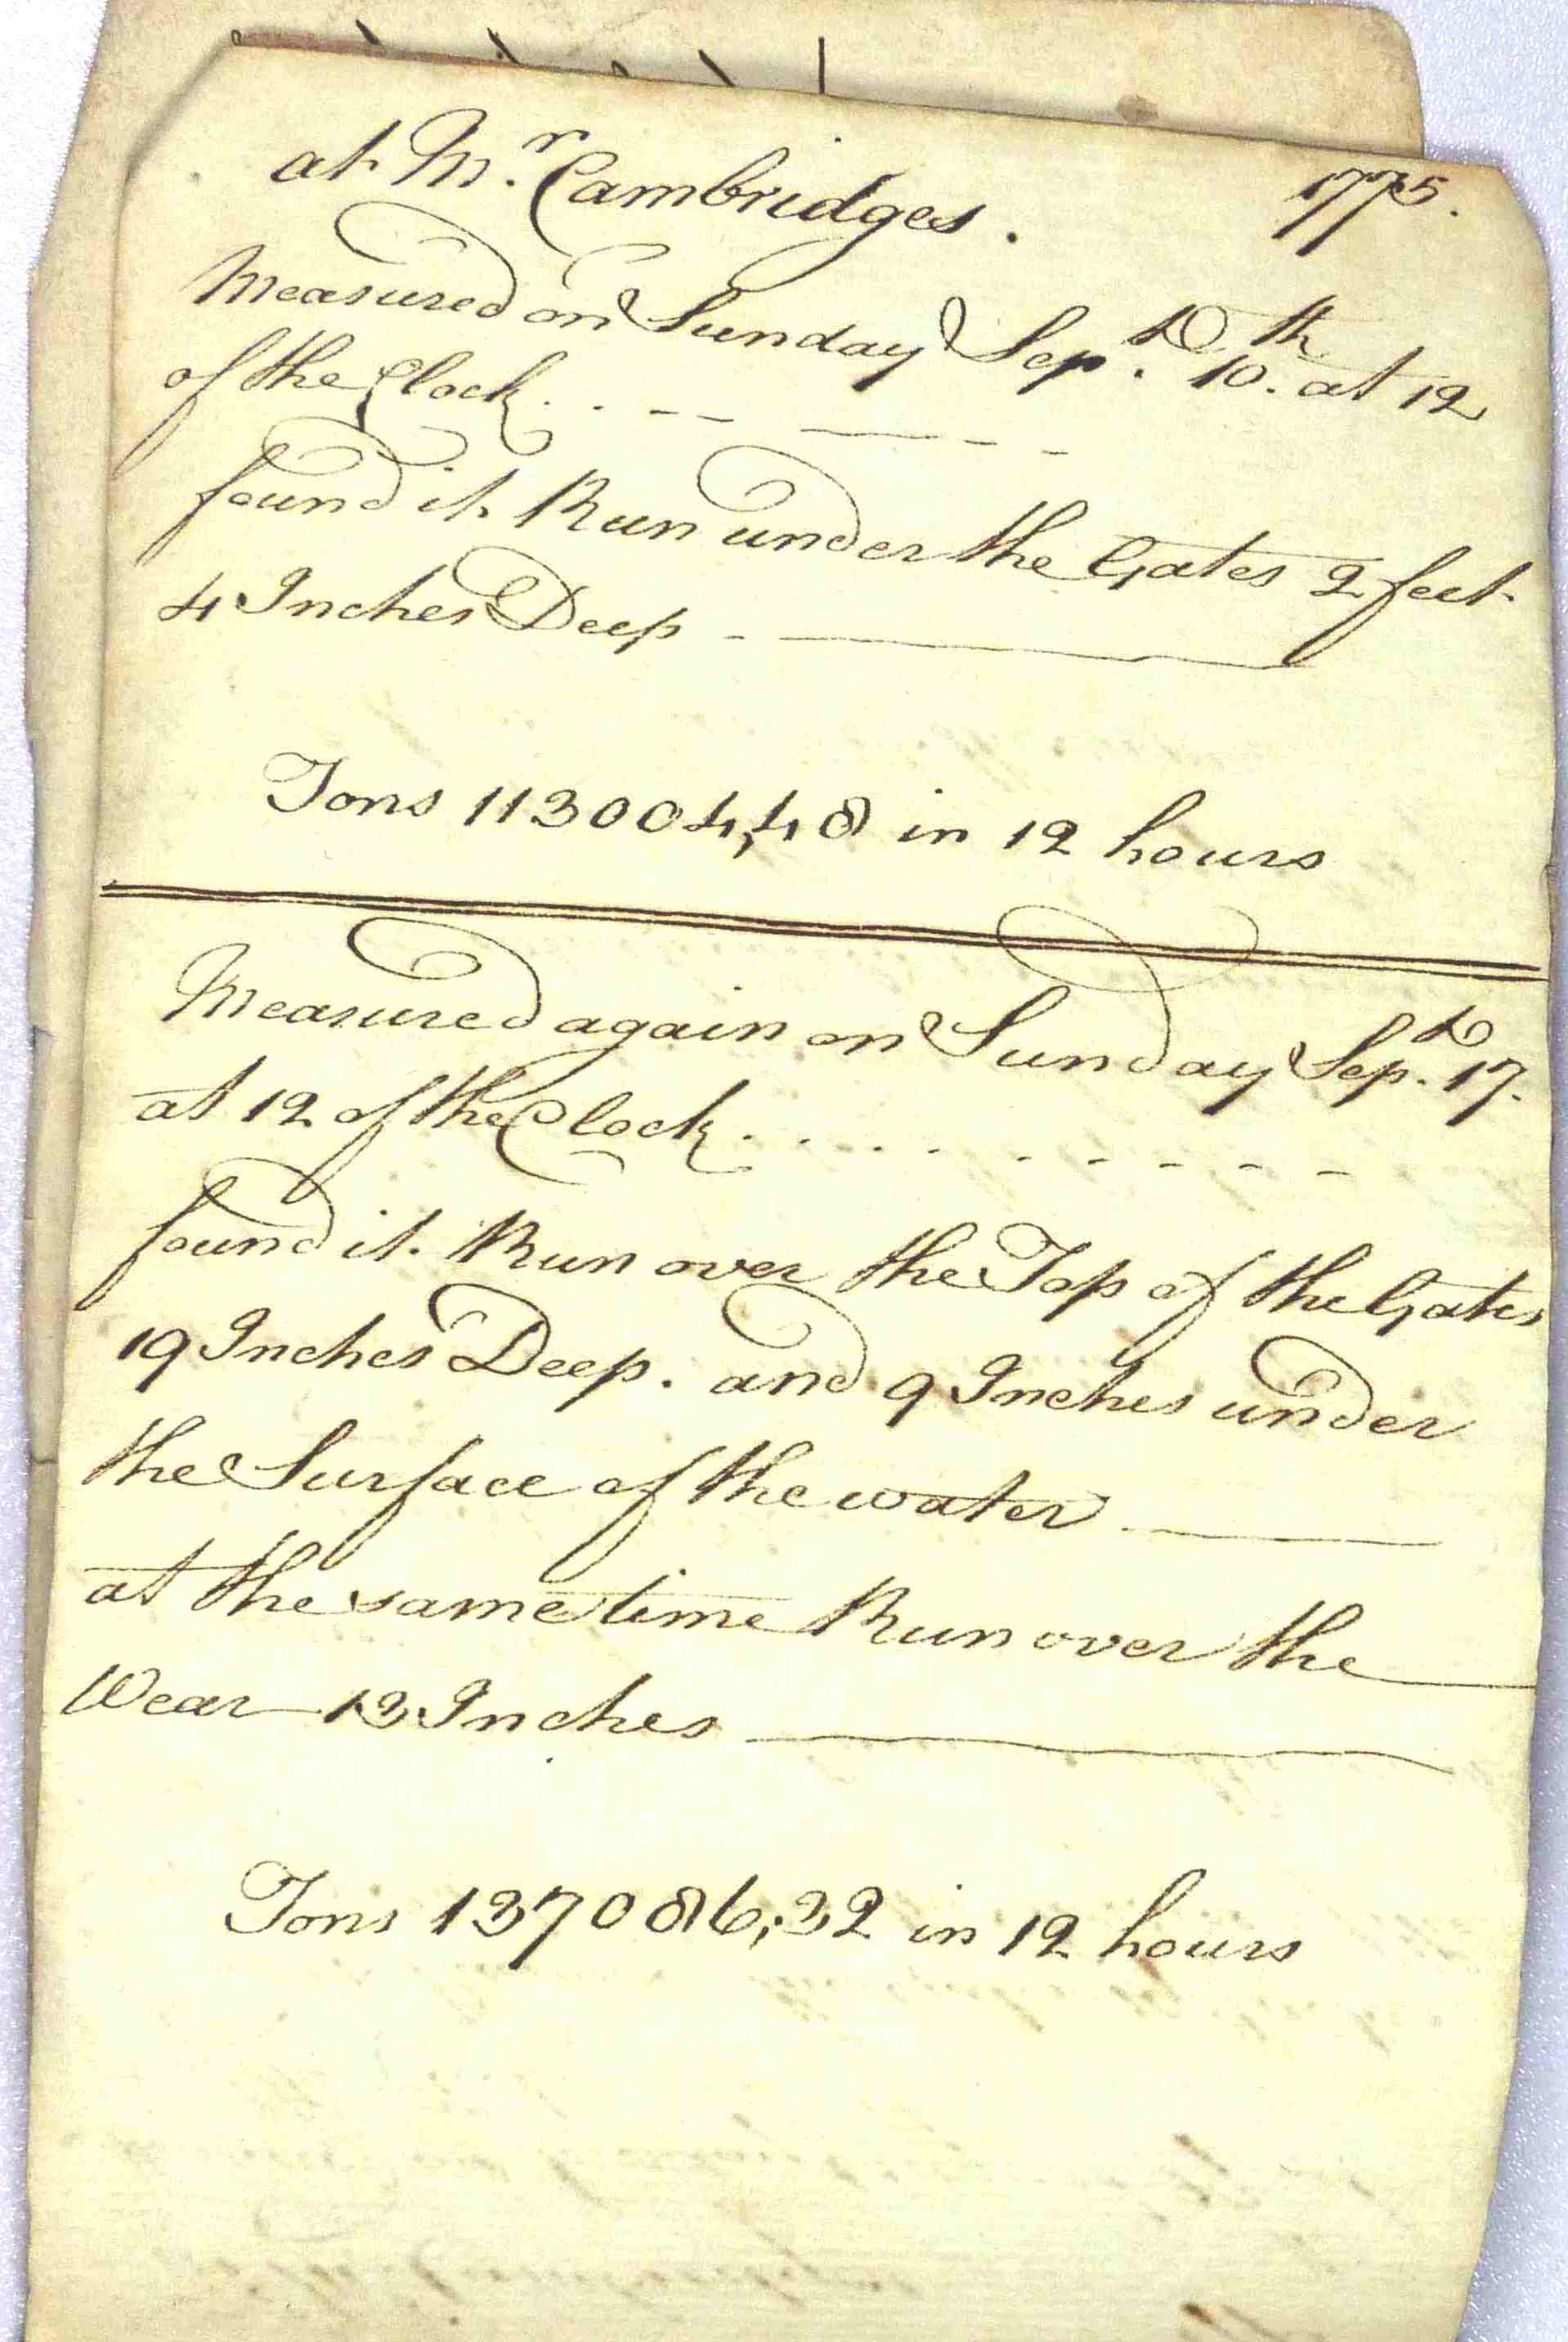 at Mr. Cambridges. 1775.
Measured on Sunday Sepr. 10th. at 12
of the Clock. . - - — - -
found it Run under the Gates 2 feet
4 Inches Deep - —
Tons 113004,48 in 12 hours
Measured again on Sunday Sepr. 17.
at 12 of the Clock. . . . . . - - - - -
found it Run over the Top of the Gates
19 Inches Deep. and 9 Inches under
the Surface of the water —
at the same time Run over the
Wear 13 Inches —
Tons 137086,32 in 12 hours